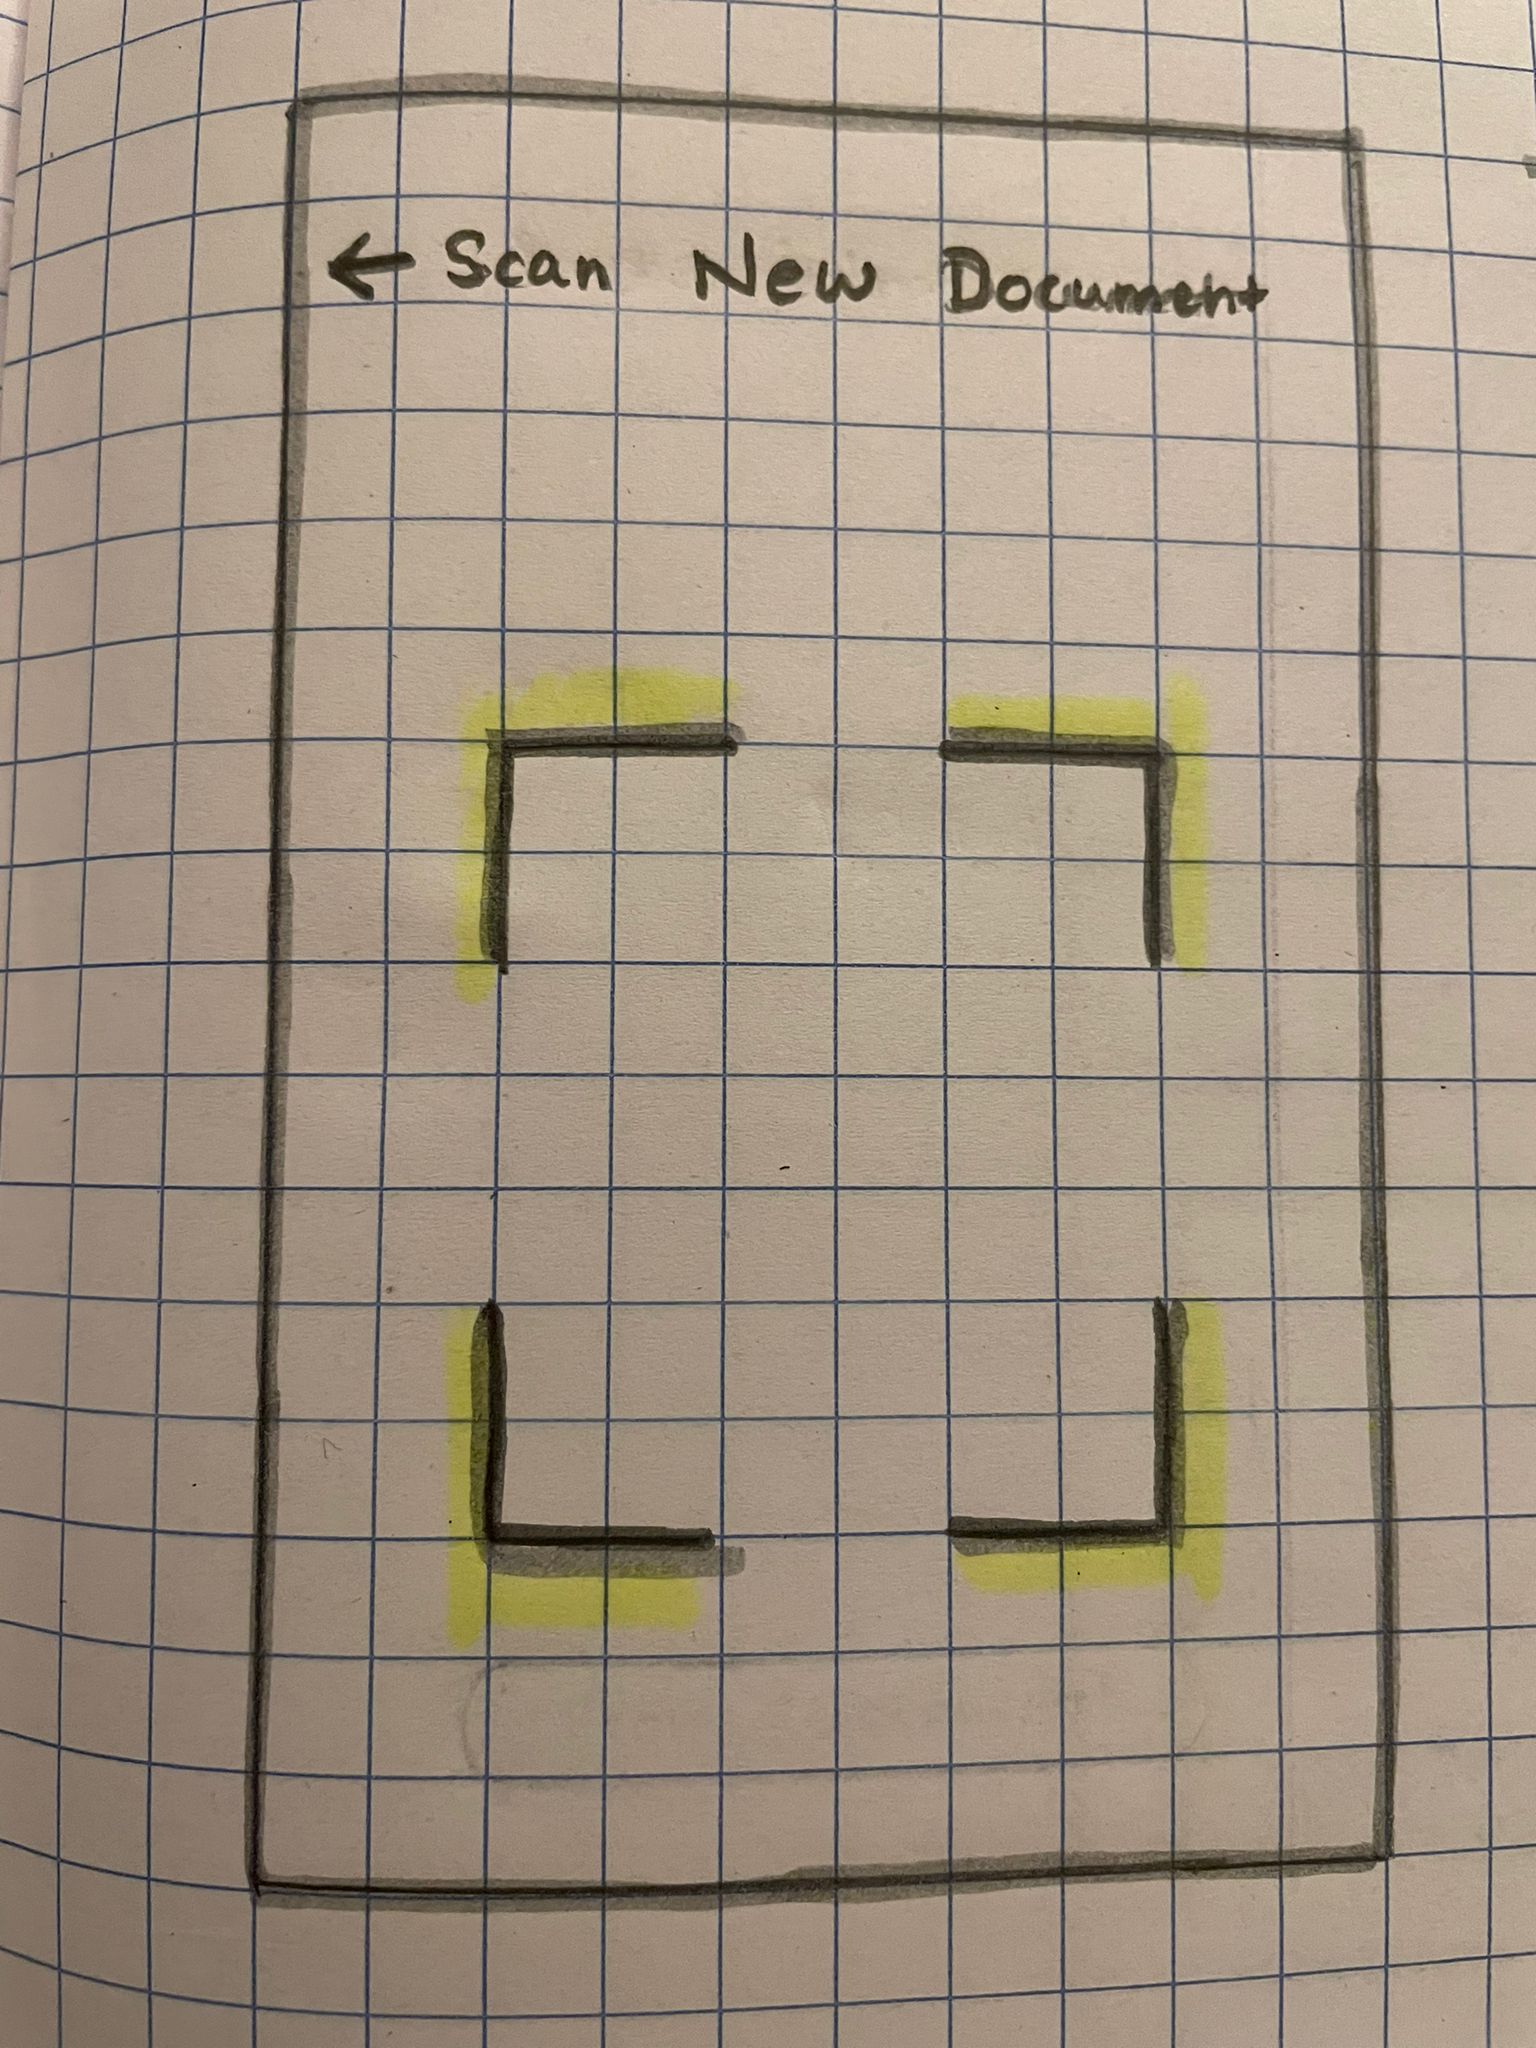 ← Scan New Document